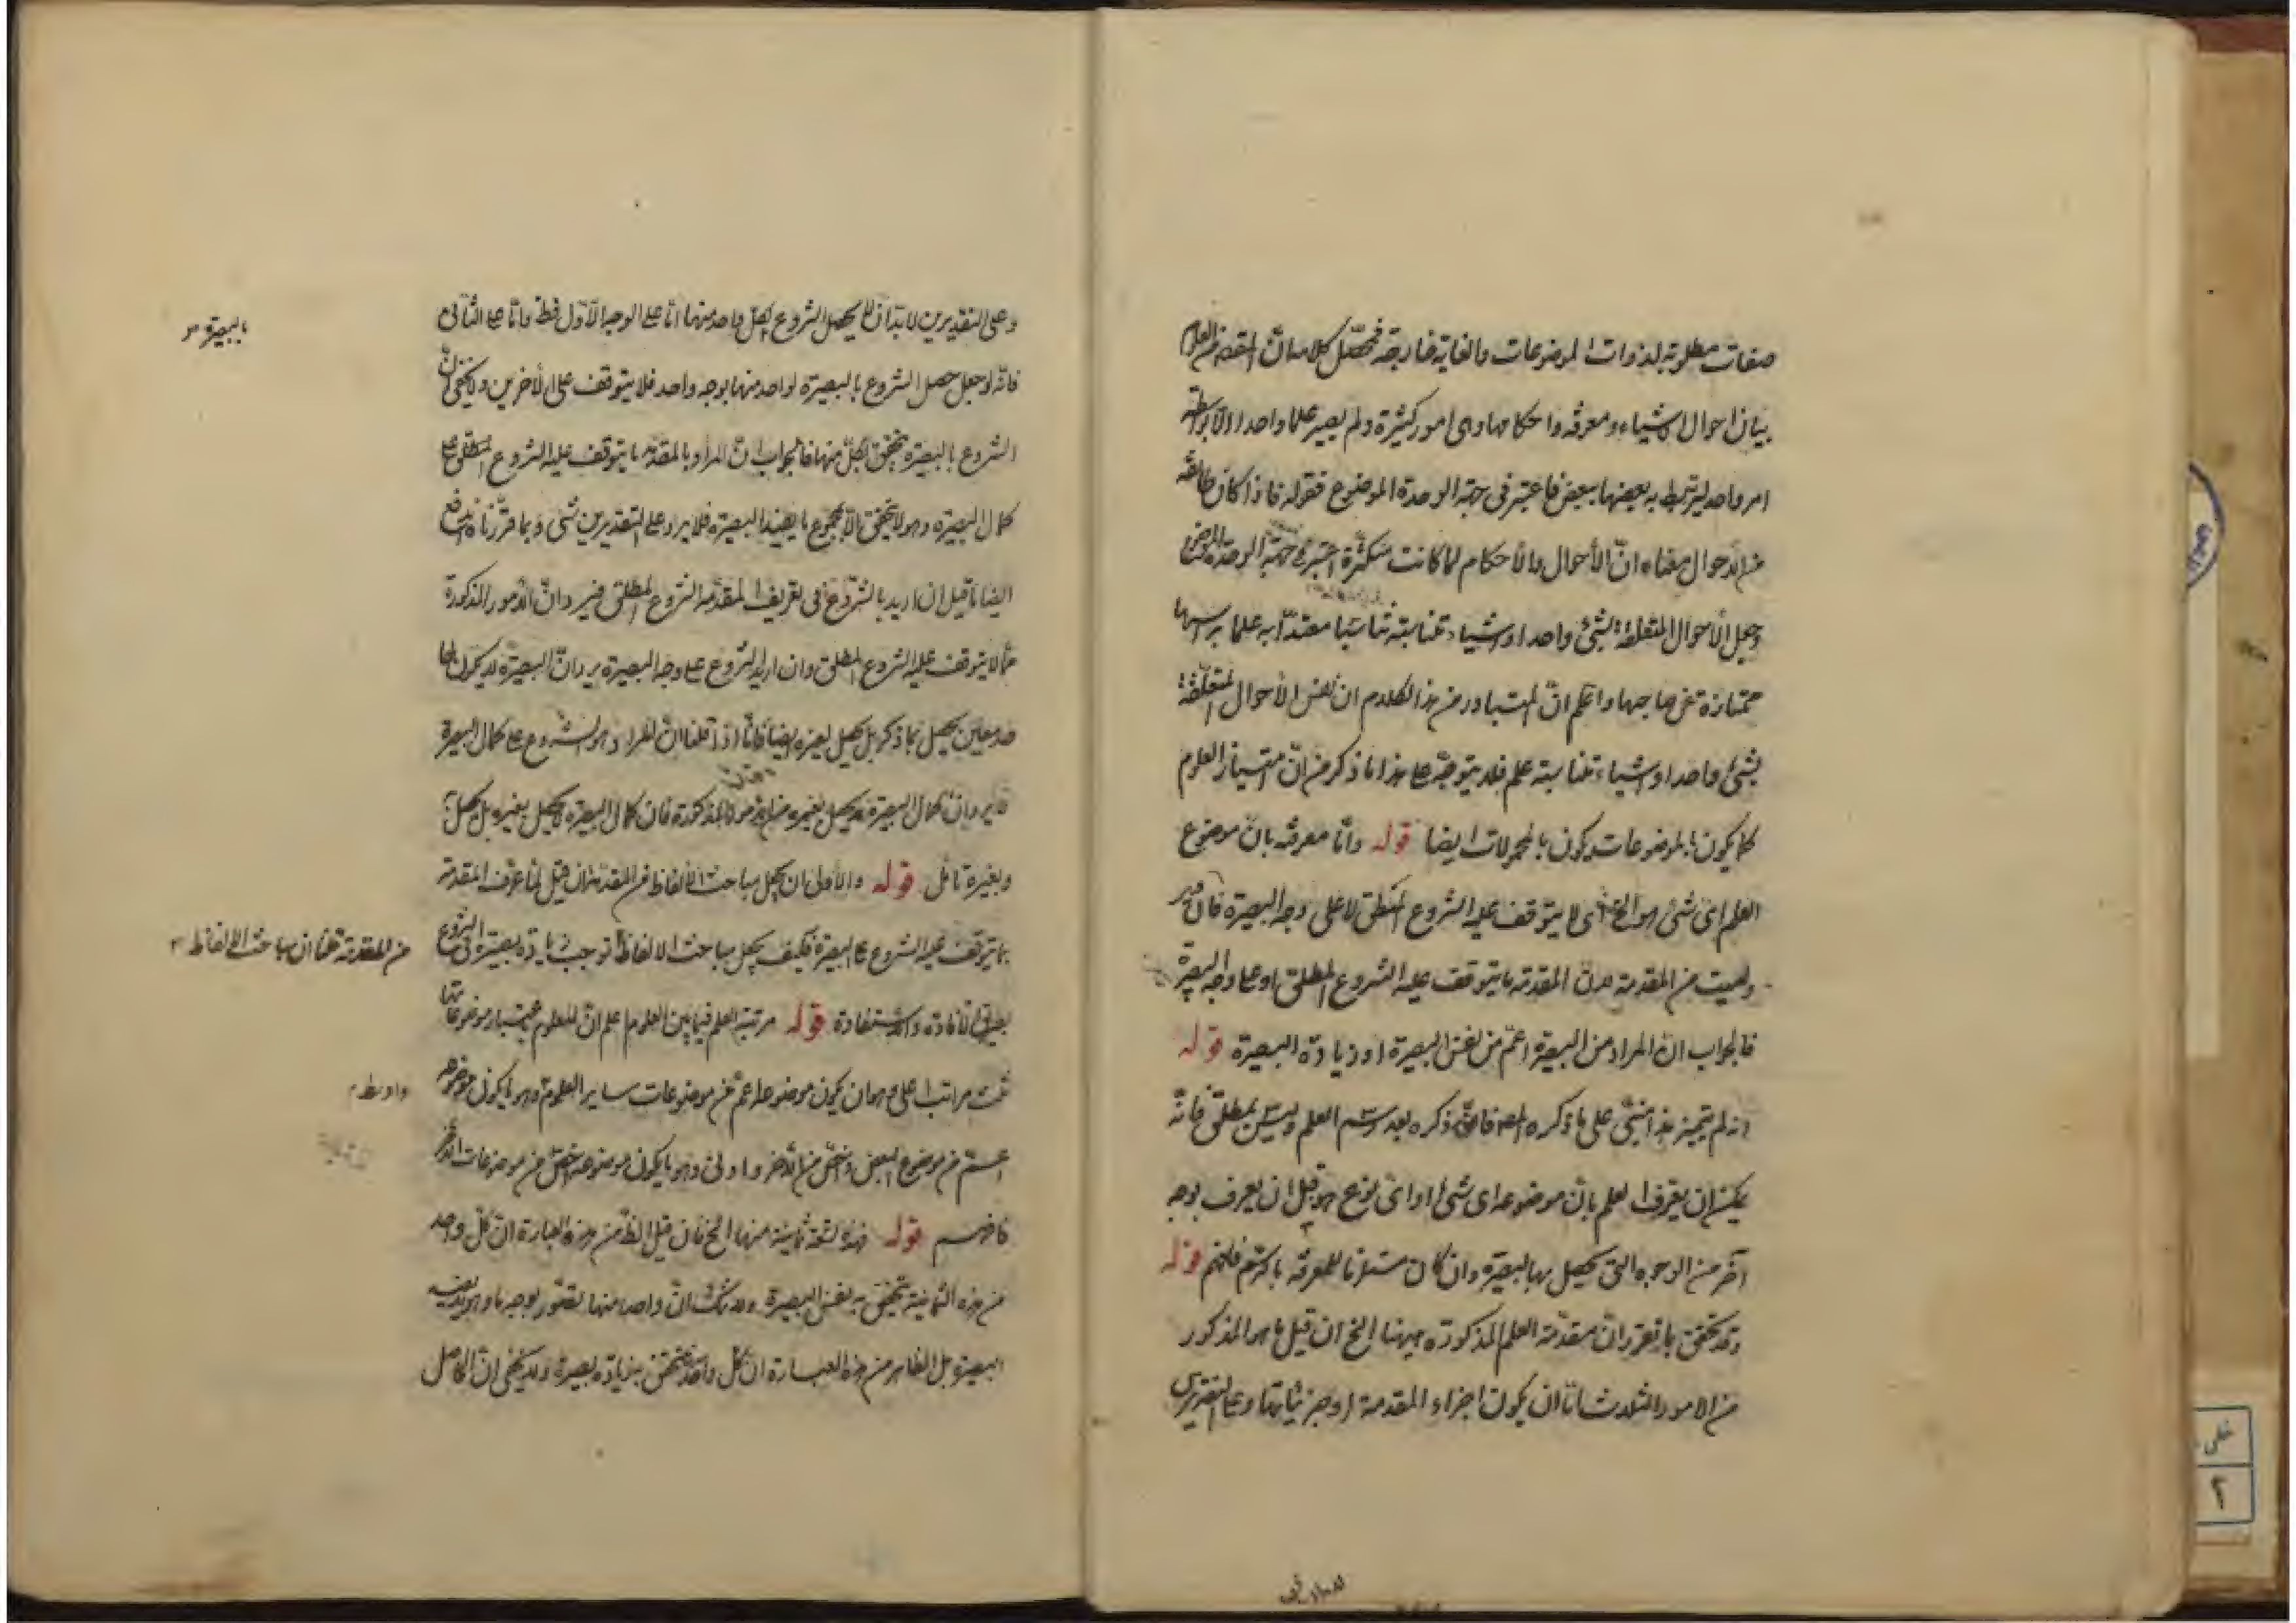 صفات مطلوبة لذوات الموضوعات والغاية خارجة فمحصّل كلامه انّ المقصد من العلوم
بيان احوال الاشياء ومعرفة احكامها وهى امور كثيرة ولم يصير علما واحدا الا بواسطة
امر واحد ليرتبط به بعضها ببعض فاعتبر فى جهة الوحدة الموضوع فقوله فاذا كان طائفة
من الاحوال معناه انّ الأحوال والأحكام لما كانت متكثرة اعتبر فى جهة الوحدة الموضوع
وجعل الأحوال المتعلقة بشئ واحد او اشياء متناسبة تناسبا معتدّا به علما برأسها
ممتازة عن صاحبها واعلم انّ المتبادر من هذا الكلام ان نفس الأحوال المتعلّقة
بشئ واحد او اشياء متناسبة علم فلا يتوجّه على هذا ما ذكر من انّ امتياز العلوم
كما يكون بالموضوعات يكون بالمحمولات ايضا قوله وامّا معرفة بانّ موضوع
العلم اىّ شئ هو الخ اى لا يتوقف عليه الشروع المطلق لا على وجه البصيرة فان قيل
وليست من المقدمة لانّ المقدمة ما يتوقف عليه الشروع المطلق او على وجه البصيرة
فالجواب انّ المراد من البصيرة اعمّ من نفس البصيرة او زيادة البصيرة قوله
انه لم يتميز هذا مبنىّ على ما ذكره المص فانه ذكره بعد رسم العلم وليس بمطلق فانّه
يمكن ان يعرف العلم بانّ موضوعه اى شئ او اىّ نوع هو قبل ان يعرف بوجه
آخر من الوجوه التى يحصل بها البصيرة وان كان مستلزما للمعرفة بالرسم فافهم قوله
وقد تحقق بما تقرر انّ مقدّمة العلم المذكورة ههنا الخ ان قيل ما هو المذكور
من الامور الثلاثة امّا ان يكون اجزاء المقدمة او جزئياتها وعلى التقديرين
وعلى التقديرين لا بد ان يحصل الشروع لكل واحد منها امّا على الوجه الأوّل فظ وامّا على الثانى
بالبصيرة
فانّه لو جعل حصل الشروع بالبصيرة لواحد منها بوجه واحد فلا يتوقف على الأخرين ولا يخفى انّ
الشروع بالبصيرة يتحقق بكلّ منها فالجواب انّ المراد بالمقدّمة ما يتوقف عليه الشروع المطلق على
كمال البصيرة وهو لا يتحقق الا بمجموع ما يفيد البصيرة فلا يرد على التقديرين شئ وبما قرّرناه اندفع
ايضا ما قيل ان اريد بالشروع فى تعريف المقدّمة الشروع المطلق فيرد انّ الأمور المذكورة
ممّا لا يتوقف عليه الشروع المطلق وان اريد الشروع على وجه البصيرة يرد انّ البصيرة لا يكون لها
حد معين يحصل بما ذكر بل يحصل بغيره ايضا فانّا اذا قلنا انّ المراد هو الشروع على كمال البصيرة
فلا يرد انّ كمال البصيرة قد يحصل بغيره من الامور المذكورة فان كمال البصيرة لا يحصل بغيره بل يحصل به
وبغيره تأمل قوله والأولى ان يجعل مباحث الألفاظ من المقدمة ان قيل لما عرّف المقدمة
بما يتوقف عليه الشروع على البصيرة فكيف يجعل مباحث الالفاظ توجب زيادة بصيرة فى الشروع
من المقدمة قلنا ان مباحث الالفاظ
بطريق الافادة والاستفادة قوله مرتبة العلم فيما بين العلوم اعلم انّ للعلوم باعتبار موضوعاتها
ثلث مراتب اعلى وهو ان يكون موضوعه اعمّ من موضوعات ساير العلوم وهو ما يكون موضوعه
واوسط
اعمّ من موضوع البعض واخصّ من الآخر وادنى وهو ما يكون موضوعه اخصّ من موضوعات الاخر
فافهم قوله فهذه تسعة ثمانية منها الخ فان قيل الظ من هذه العبارة انّ كلّ واحد
من هذه الثمانية يتحقق به نفس البصيرة ولا شك انّ واحدا منها تصوّر بوجه ما وهو لا يفيد
البصيرة بل الظاهر من هذه العبارة ان كل واحد يتحقق بزيادة بصيرة ولا يخفى انّ الحاصل